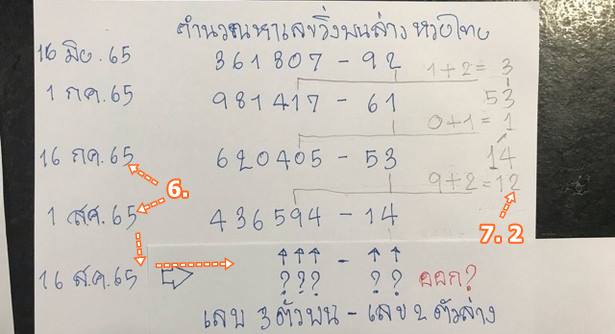 คำนวณหาเลขวิ่งบนล่าง หวยไทย
16 มิย. 65 361807 - 92 1+2= 3
1 กค. 65 981417 - 61 53
0+1= 1
16 กค. 65 620405 - 53 14
6. 9+2=12
1 สค. 65 436594 - 14 7. 2
↑↑↑ - ↑↑
16 ส.ค. 65 ⇨ ??? ?? ออก?
เลข 3 ตัวบน - เลข 2 ตัวล่าง